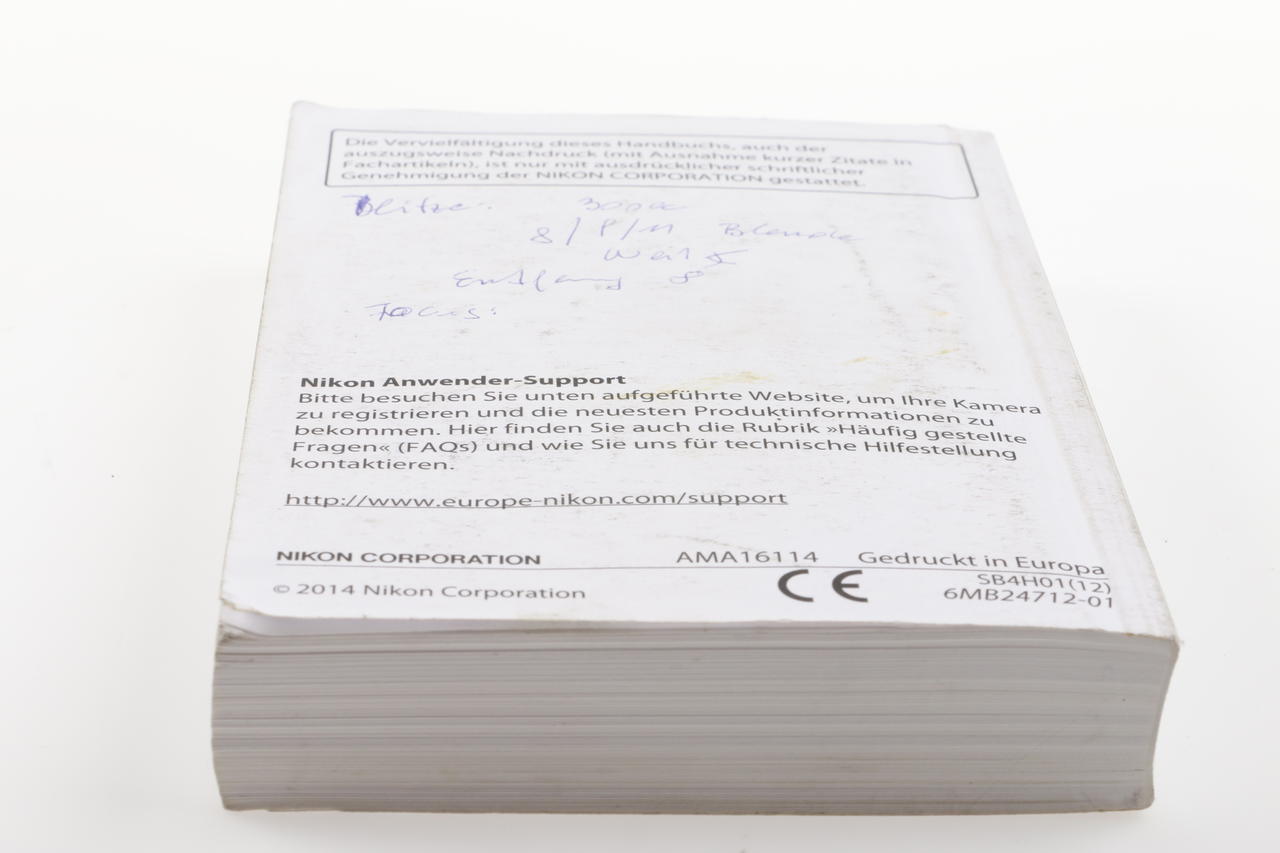 Die Vervielfältigung dieses Handbuchs, auch der
auszugsweise Nachdruck (mit Ausnahme kurzer Zitate in
Fachartikeln), ist nur mit ausdrücklicher schriftlicher
Genehmigung der NIKON CORPORATION gestattet.
Blitze:
8/ Blende
Focus:
Nikon Anwender-Support
Bitte besuchen Sie unten aufgeführte Website, um Ihre Kamera
zu registrieren und die neuesten Produktinformationen zu
bekommen. Hier finden Sie auch die Rubrik »Häufig gestellte
Fragen« (FAQs) und wie Sie uns für technische Hilfestellung
kontaktieren.
http://www.europe-nikon.com/support
NIKON CORPORATION AMA16114 Gedruckt in Europa
SB4H01(12)
© 2014 Nikon Corporation CE 6MB24712-01